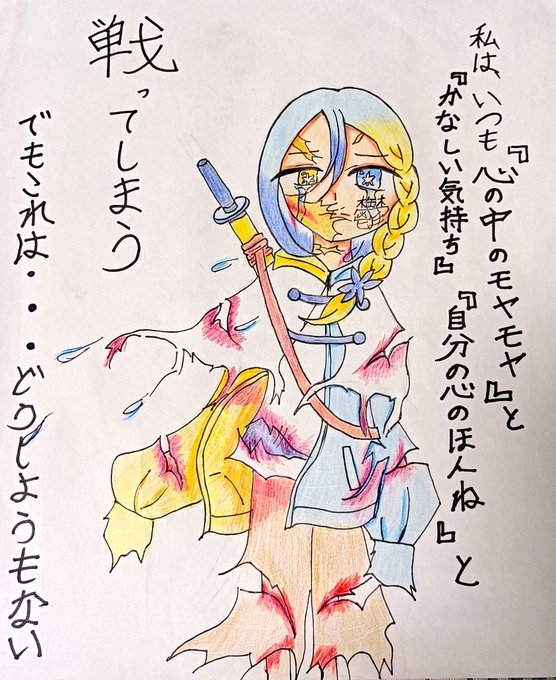 私は、いつも『心の中のモヤモヤ』と
『かなしい気持ち』『自分の心のほんね』と
戦ってしまう
でもこれは・・・どうしようもない